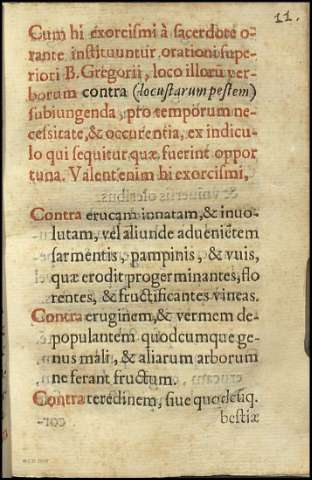 11.
Cum hi exorcismi à sacerdote o-
rante instituuntur, orationi supe-
riori B. Gregorii, loco illorū ver-
borum contra (locustarum pestem)
subiungenda, pro temporum ne-
cessitate, & occurentia, ex indicu-
lo qui sequitur quæ fuerint oppor
tuna. Valent enim hi exorcismi,
Contra erucam ionatam, & inuo-
lutam, vel aliunde aduenietem
sarmentis, pampinis, & vuis,
quæ erodit progerminantes, flo
rentes, & fructificantes vineas.
Contra eruginem, & vermem de-
populantem quodcumque ge-
nus mali, & aliarum arborum
ne ferant fructum.
Contra teredinem, siue quodq.
bestiæ